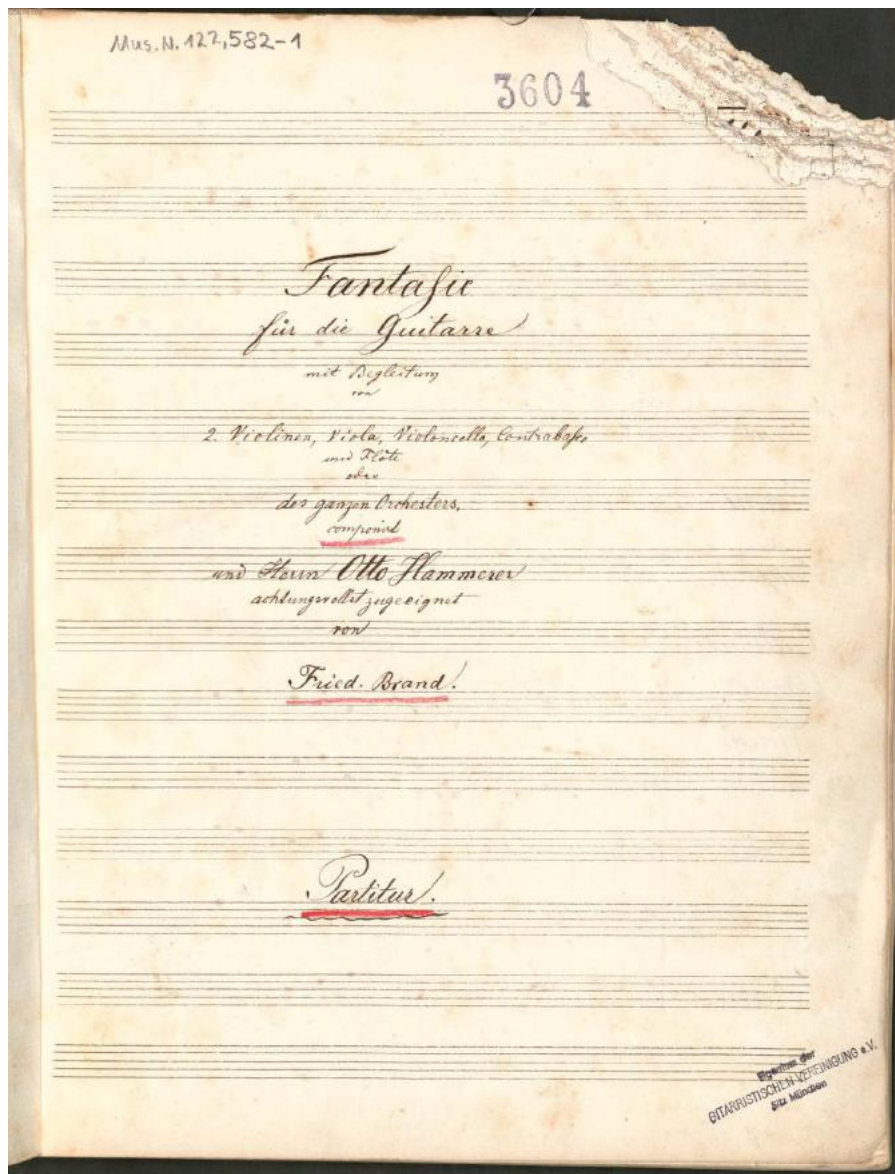 Mus. N. 122,582-1
3604
Fantasie
für die Guitarre
mit Begleitung
von
2. Violinen, Viola, Violoncello, Contrabaſso
und Flöte
oder
des ganzen Orchesters,
componirt
und Herrn Otto Hammerer
achtungsvollst zugeeignet
von
Fried. Brand.
Partitur.
Eigentum der
GITARRISTISCHEN VEREINIGUNG e.V.
Sitz München